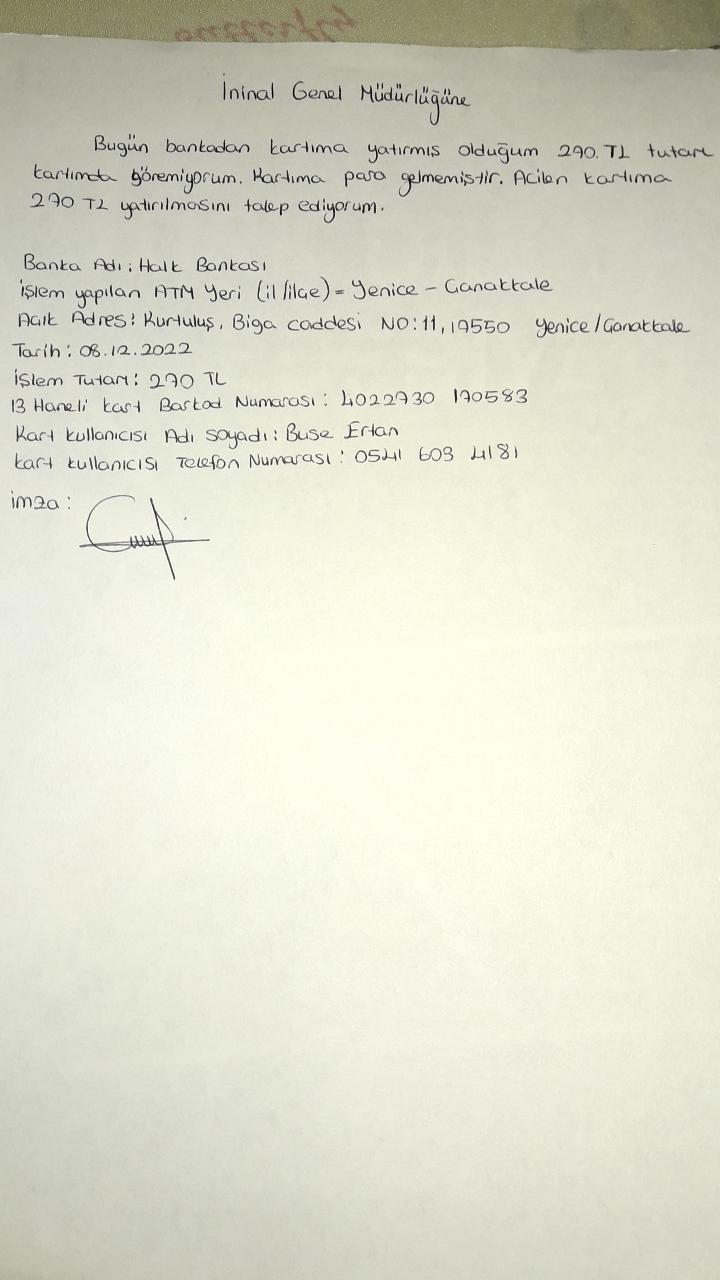 İninal Genel Müdürlüğüne
Bugün bankadan kartıma yatırmış olduğum 270. TL tutarı
kartımda göremiyorum. Kartıma para gelmemiştir. Acilen kartıma
270 TL yatırılmasını talep ediyorum.
Banka Adı: Halk Bankası
İşlem yapılan ATM Yeri (il/ilçe) = Yenice - Çanakkale
Açık Adres: Kurtuluş, Biga caddesi NO:11, 17550 Yenice/Çanakkale
Tarih: 08.12.2022
İşlem Tutarı: 270 TL
13 Haneli kart Barkod Numarası: 4022730 170583
Kart kullanıcısı Adı soyadı: Buse Ertan
kart kullanıcısı Telefon Numarası: 0541 603 4181
imza: